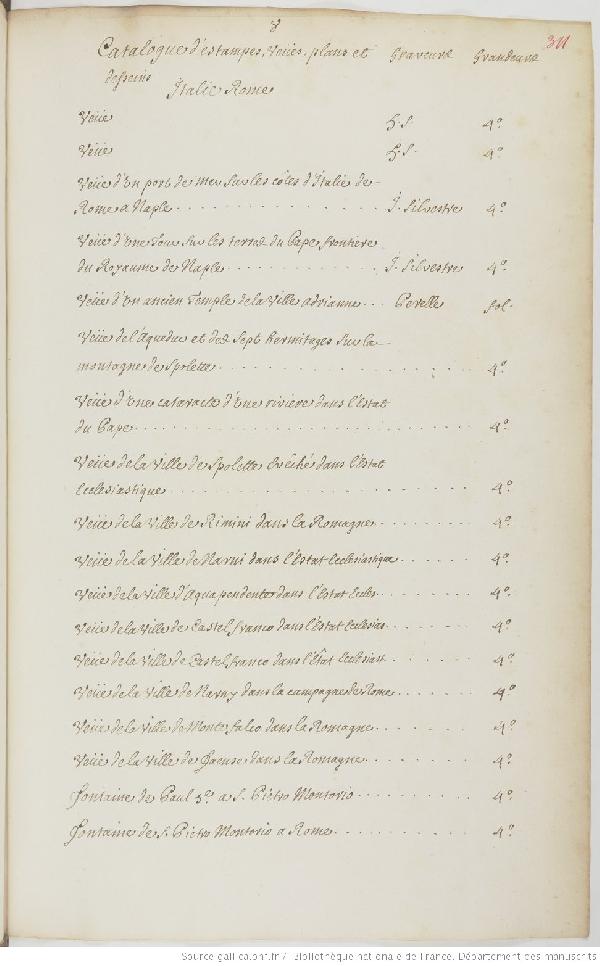 8
311
Catalogue d'estampes, Veües, plans et Graveurs Grandeurs
desseins
Italie Rome
Veüe h.s. 4º.
Veüe h.s. 4º.
Veüe d'un port de mer sur les côtes d'Italie de
Rome a Naple J. Silvestre 4º.
Veüe d'une tour sur les terres du Pape frontiere
du Royaume de Naple J. Silvestre 4º.
Veüe d'un ancien Temple de la Ville adrianne Perelle fol.
Veüe de l'Aqueduc et des sept hermitages sur la
montagne de Spolette 4º.
Veüe d'une cataracte d'une riviere dans l'Estat
du Pape 4º.
Veüe de la Ville de Spolette Evêché dans l'Estat
Ecclesiastique 4º.
Veüe de la Ville de Rimini dans la Romagne 4º.
Veüe de la Ville de Narni dans l'Estat Ecclesiastique 4º.
Veüe de la Ville d'Aquapendente dans l'Estat Eccles. 4º.
Veüe de la Ville de Castel franco dans l'Estat Ecclesias 4º.
Veüe de la Ville de Castel franco dans l'Êtat Ecclesiast 4º.
Veüe de la Ville de Narny dans la campagne de Rome 4º.
Veüe de la Ville de Monte falco dans la Romagne 4º.
Veüe de la Ville de dans la Romagne 4º.
Fontaine de Paul 5º. a S. Pietro Montorio 4º.
Fontaine de S. Pietro Montorio a Rome 4º.
Source gallica.bnf.fr / Bibliothèque nationale de France. Département des manuscrits